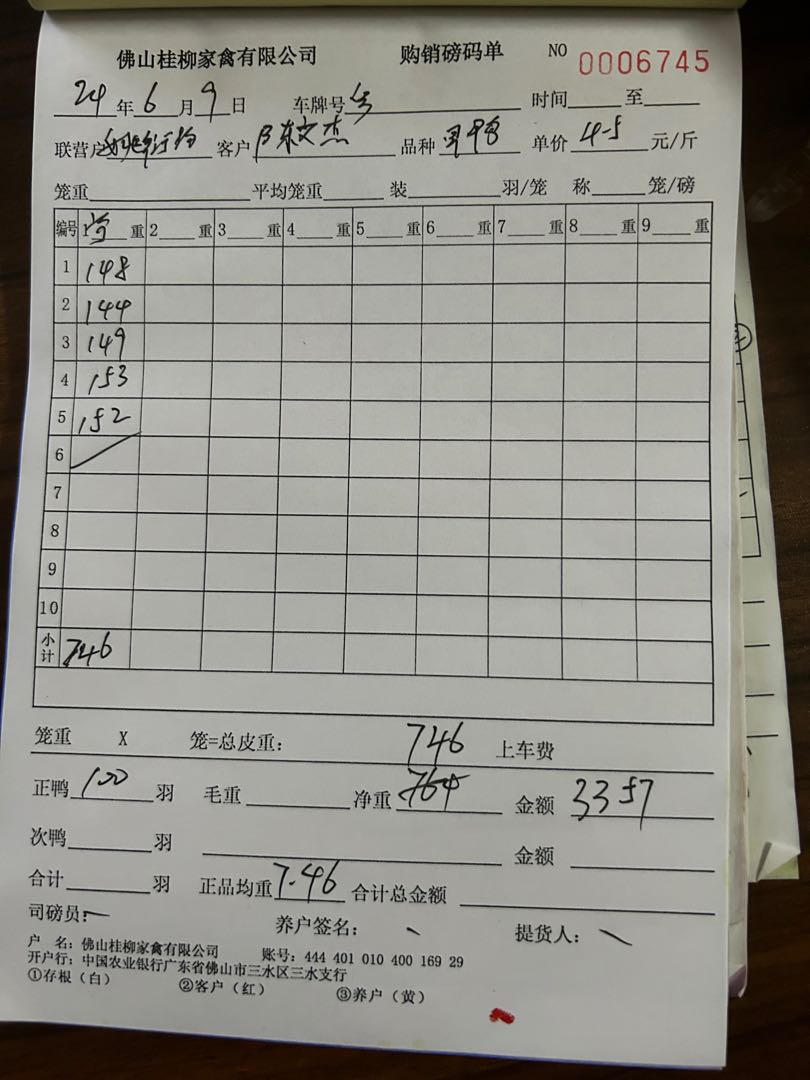 佛山桂柳家禽有限公司 购销磅码单 NO 0006745
24年6月9日 车牌号 时间 至
联营户 客户 陈文杰 品种 单价 4.5 元/斤
笼重 平均笼重 装 羽/笼 称 笼/磅
编号 1 重 2 重 3 重 4 重 5 重 6 重 7 重 8 重 9 重
1 148
2 144
3 149
4 153
5 152
6
7
8
9
10
小计 746
笼重 X 笼=总皮重: 746 上车费
正鸭 100 羽 毛重 净重 764 金额 3357
次鸭 羽 金额
合计 羽 正品均重 7.46 合计总金额
司磅员: 养户签名: 提货人:
户 名: 佛山桂柳家禽有限公司 账号: 444 401 010 400 169 29
开户行: 中国农业银行广东省佛山市三水区三水支行
①存根(白) ②客户(红) ③养户(黄)